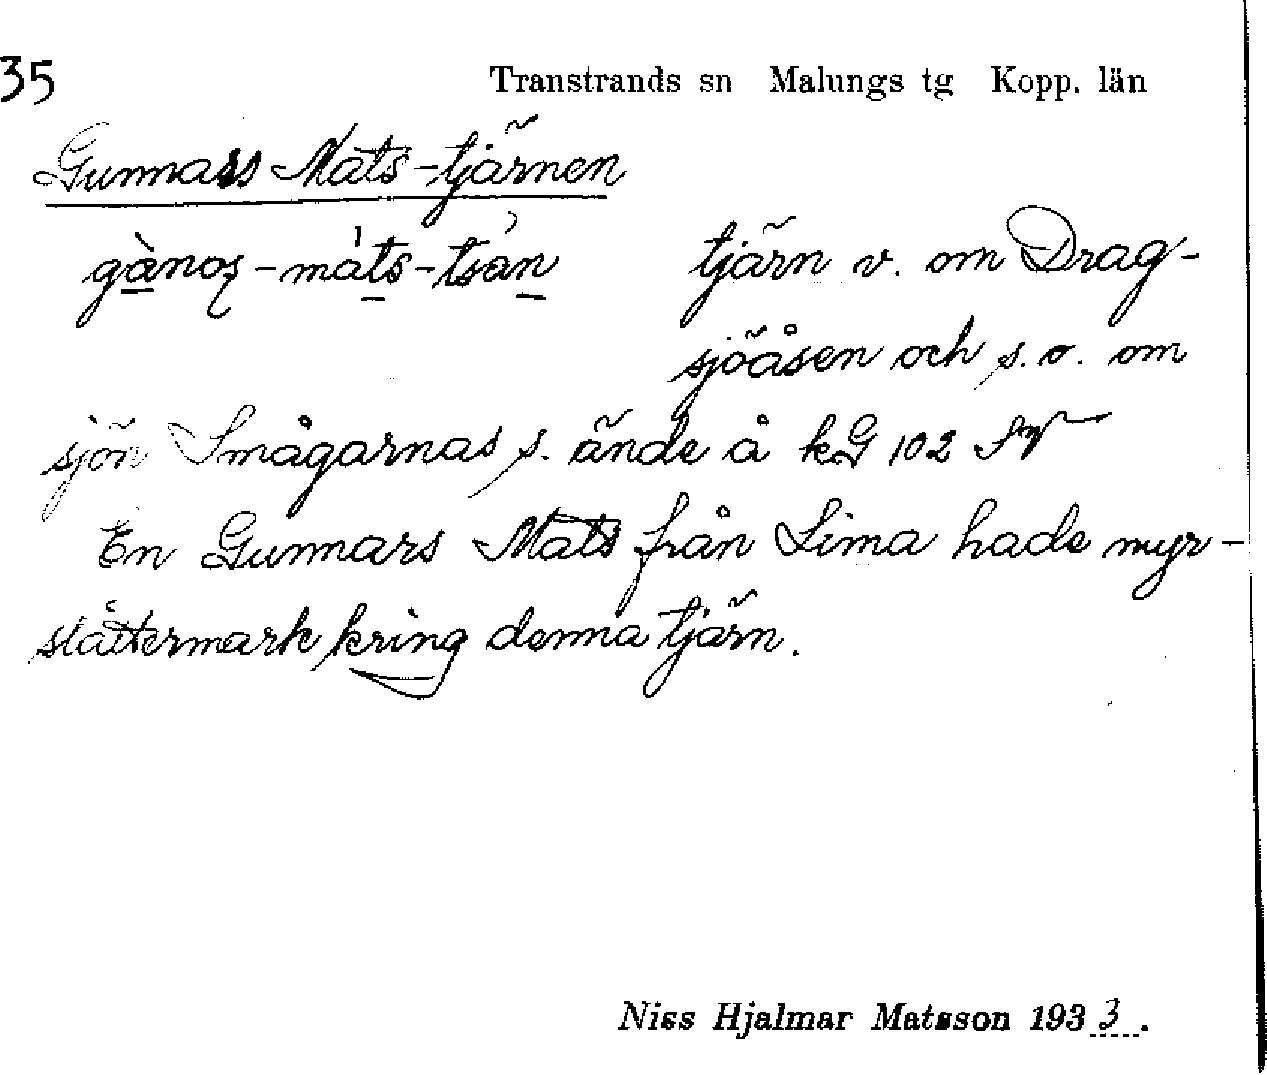 35
Transtrands sn Malungs tg Kopp. län
Gunnars Mats-tjärnen
tjärn v. om Drag-
sjöåsen och s.o. om
sjön Smågarnas s. ände å kG 102 SV
En Gunnars Mats från Lima hade myr-
slåttermark kring denna tjärn.
Niss Hjalmar Matsson 1933.